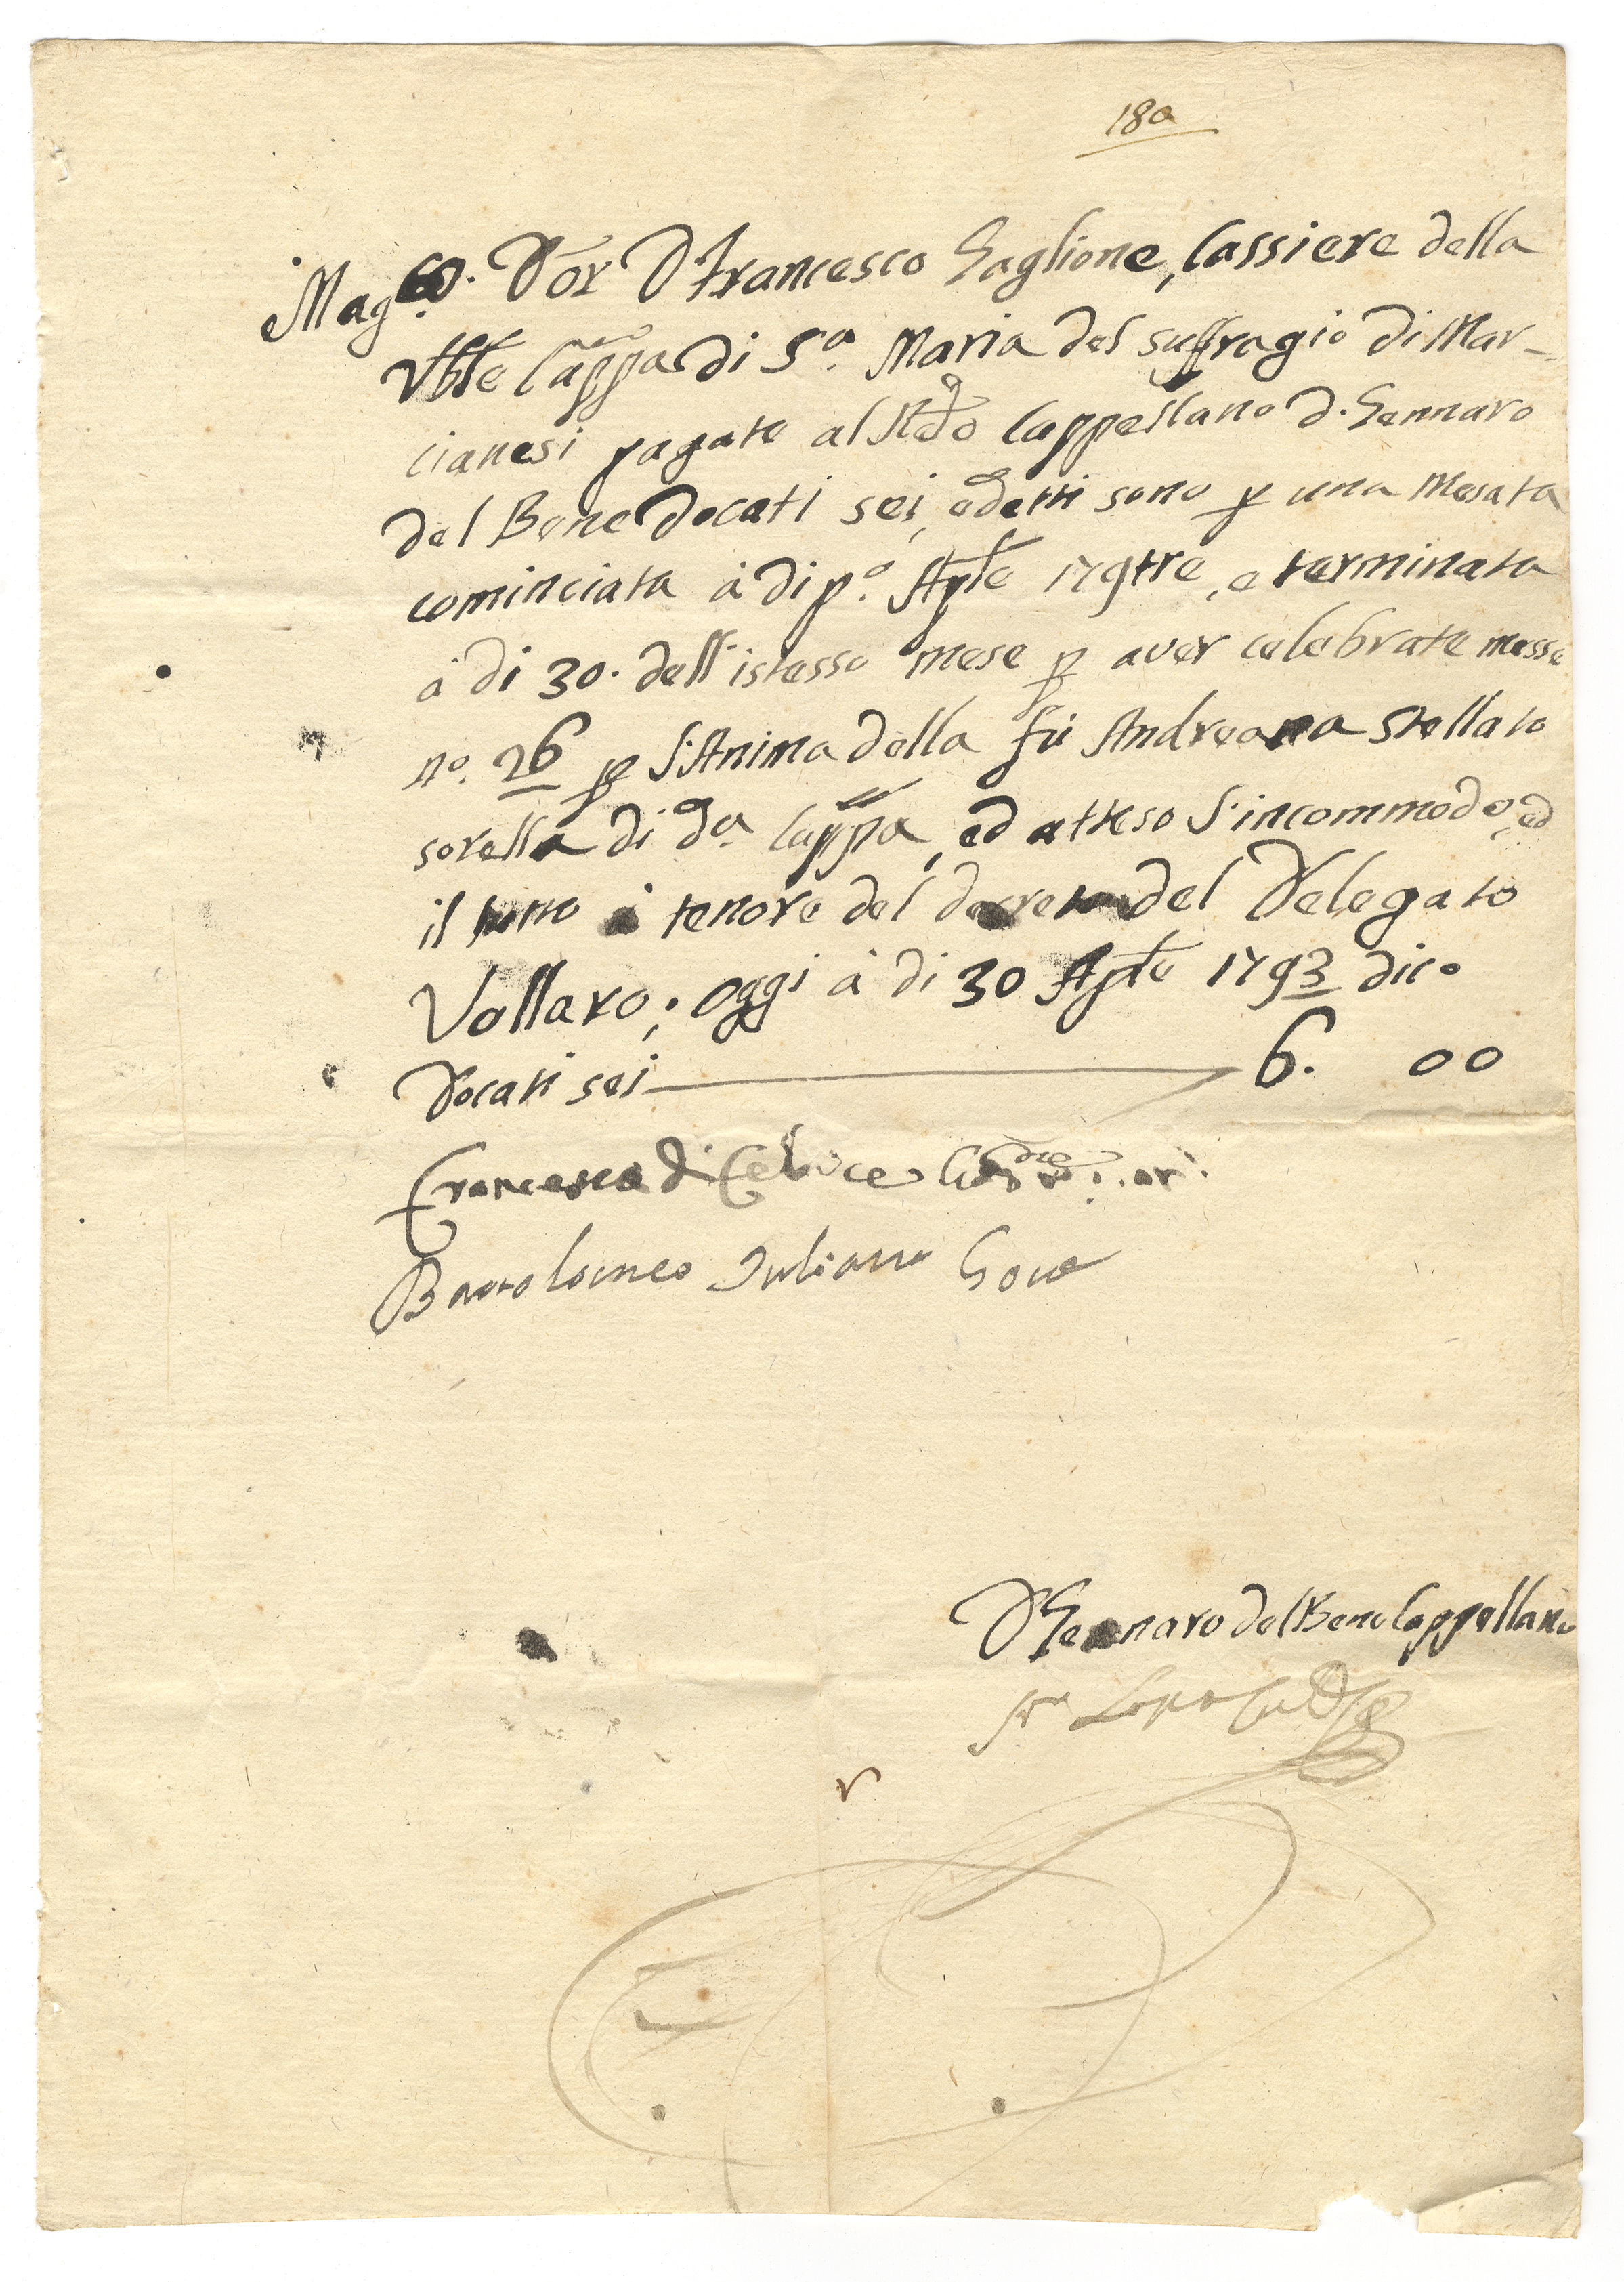 180
Mag.co Dor D Francesco Gaglione, Cassiere della
Vble Cappa di Sa. Maria del suffragio di Mar-
cianesi pagate al Rdo Cappellano D. Gennaro
del Bene Docati sei, e detti sono p una Mesata
cominciata à di po. Aple 179tre, e terminata
à di 30. dell'istesso mese p aver celebrate messe
no. 26 p l'Anima della fù Andreana Stellato
sorella di da. Cappa, ed atteso l'incommodo, ed
il tutto à tenore del decreto del Delegato
Vollaro; oggi à di 30 Aple 1793 dico
Docati sei 6. 00
Francesco di
Bartolomeo Iuliano Gove
D Gennaro del Bene Cappellano